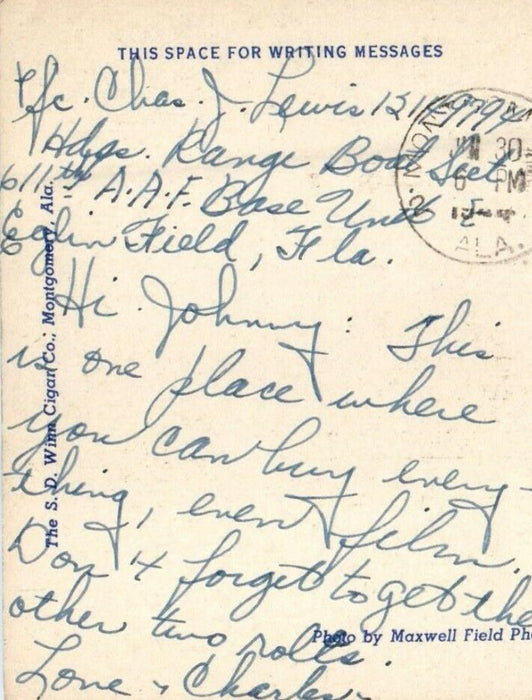 THIS SPACE FOR WRITING MESSAGES
Pfc. Chas. J. Lewis
Hdqs. Range Boat Sect.
611th A.A.F. Base Unit
Eglin Field, Fla.
Hi Johnny: This
is one place where
you can buy every-
thing, even film.
Don't forget to get the
other two rolls.
Love - Charles-
The S. D. Winn Cigar Co., Montgomery, Ala.
Photo by Maxwell Field Ph
30
6 PM
ALA